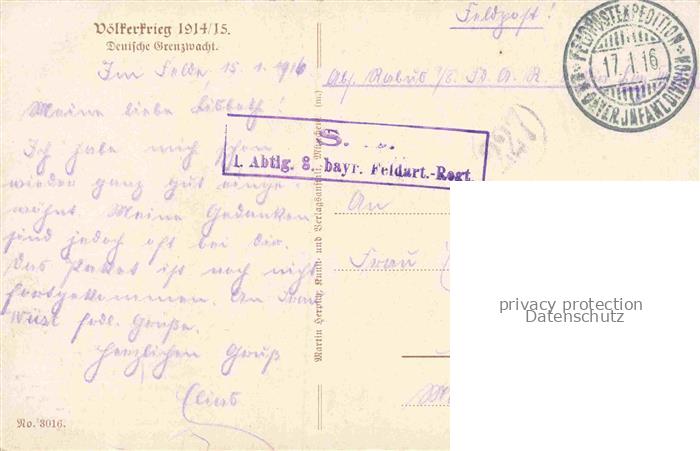 Völkerkrieg 1914/15.
Deutsche Grenzwacht.
Feldpost!
FELDPOSTEXPEDITION
17.1.16
BAYER. INFANT. DIVISION
Im Felde, 15.1.1916
Abs. Rabus
Meine liebe Lisbeth!
S.
1. Abtlg. 8. bayr. Feldart.-Regt.
Ich habe mich schon
wieder ganz gut einge-
wöhnt. Meine Gedanken
sind jedoch oft bei Dir.
Das Paket ist noch nicht
fortgekommen. An Frau
Wüst frdl. Grüße.
Herzlichen Gruß
An
Frau
Martin Herpich, Kunst- und Verlagsanstalt, München
No. 3016.
privacy protection
Datenschutz